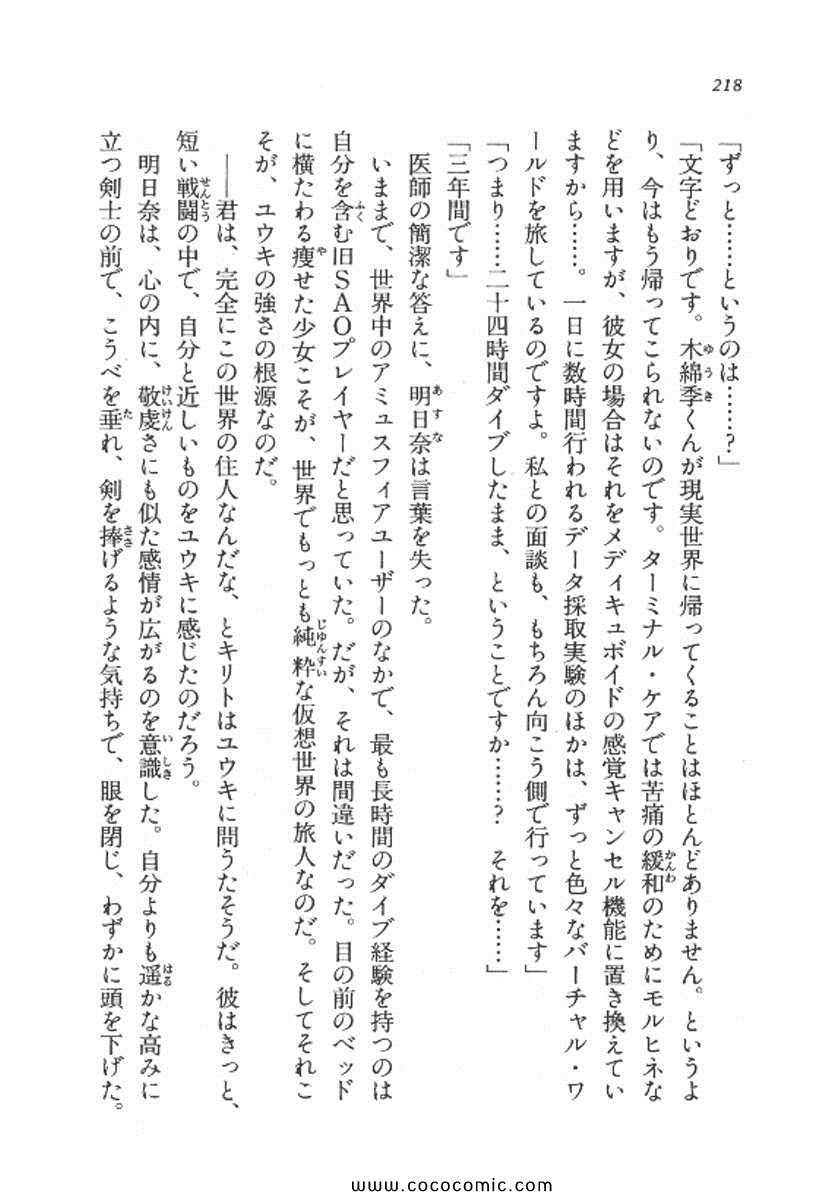 218
「ずっと……というのは……？」
「文字どおりです。木綿季くんが現実世界に帰ってくることはほとんどありません。というよ
り、今はもう帰ってこられないのです。ターミナル・ケアでは苦痛の緩和のためにモルヒネな
どを用いますが、彼女の場合はそれをメディキュボイドの感覚キャンセル機能に置き換えてい
ますから……。一日に数時間行われるデータ採取実験のほかは、ずっと色々なバーチャル・ワ
ールドを旅しているのですよ。私との面談も、もちろん向こう側で行っています」
「つまり……二十四時間ダイブしたまま、ということですか……？　それを……」
「三年間です」
医師の簡潔な答えに、明日奈は言葉を失った。
いままで、世界中のアミュスフィアユーザーのなかで、最も長時間のダイブ経験を持つのは
自分を含む旧ＳＡＯプレイヤーだと思っていた。だが、それは間違いだった。目の前のベッド
に横たわる痩せた少女こそが、世界でもっとも純粋な仮想世界の旅人なのだ。そしてそれこ
そが、ユウキの強さの根源なのだ。
――君は、完全にこの世界の住人なんだな、とキリトはユウキに問うたそうだ。彼はきっと、
短い戦闘の中で、自分と近しいものをユウキに感じたのだろう。
明日奈は、心の内に、敬虔さにも似た感情が広がるのを意識した。自分よりも遥かな高みに
立つ剣士の前で、こうべを垂れ、剣を捧げるような気持ちで、眼を閉じ、わずかに頭を下げた。
www.cococomic.com